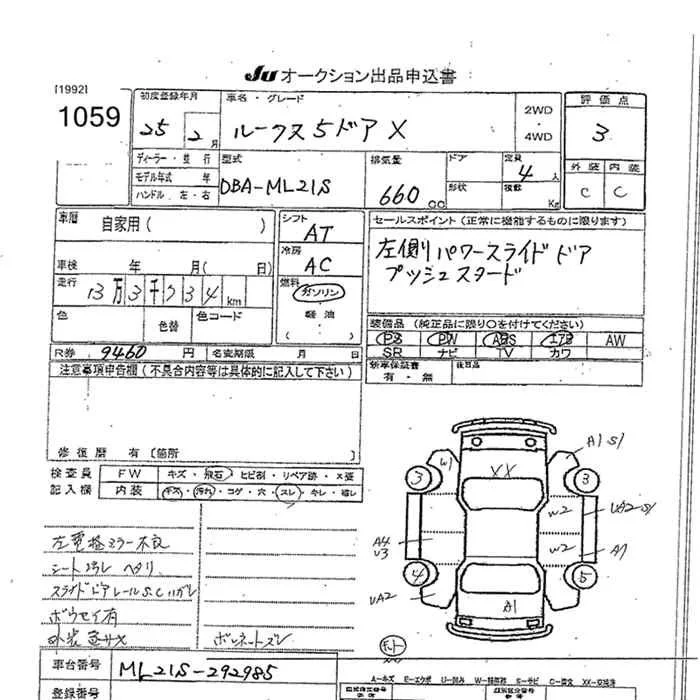 JU オークション出品申込書
[1992]
1059
初度登録年月
25 2 月
車名・グレード
ルークス5ドア X
2WD
・
4WD
評価点
3
外装 内装
C C
ディーラー・並行
モデル年式 年
ハンドル 左・右
型式
DBA-ML21S
排気量
660 cc
ドア
形状
定員
4 人
積数
Kg
車歴
自家用( )
シフト
AT
冷房
AC
燃料
ガソリン
軽油
( )
車検 年 月( 日)
走行 13万3千734 km
色
色替
色コード
セールスポイント(正常に機能するものに限ります)
左側りパワースライドドア
プッシュスタード
装備品(純正品に限り○を付けてください)
PS PW ABS エアB AW
SR ナビ TV カワ
新車保証書
有・無
後日品
R券 9460 円
名変期限 月 日
注意事項申告欄(不具合内容等は具体的に記入して下さい)
修復歴 有〔箇所 〕
検査員
記入欄
FW キズ・飛石・ヒビ割・リペア跡・X要
内装 キズ・汚れ・コゲ・穴・スレ・キレ・
左電格ミラー不良
シート汚レ ヘタリ
スライドドアレールS.Cハガレ
ボウセイ有
ボンネートズレ
W1
XX
A1 S1
3
3
W2
UA2 S1
W2
A7
A4
U3
4
5
UA2
A1
車台番号
ML21S-292985
登録番号
A-キズ E-エクボ